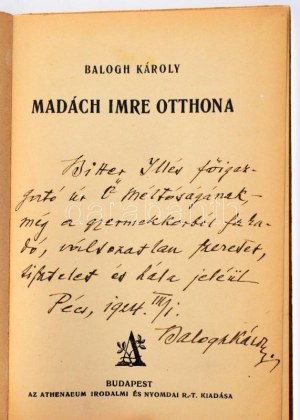 BALOGH KÁROLY
MADÁCH IMRE OTTHONA
Bitter Illés főigaz-
gató úr Ő Méltóságának,
még a gyermekkorból faka-
dó, változatlan szeretet,
tisztelet és hála jeléül
Pécs, 1924. III/1.
Balogh Károly
A
BUDAPEST
AZ ATHENAEUM IRODALMI ÉS NYOMDAI R.-T. KIADÁSA